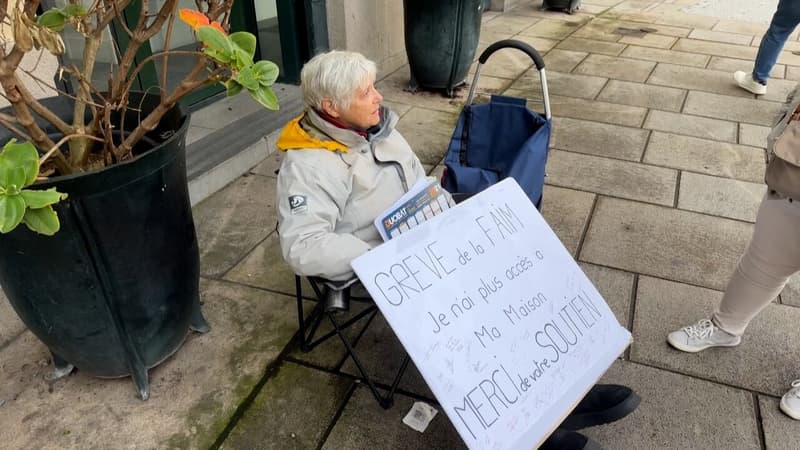 DUOBAT
GRÈVE de la FAIM
Je n'ai plus accès a
Ma Maison
MERCI de votre SOUTIEN